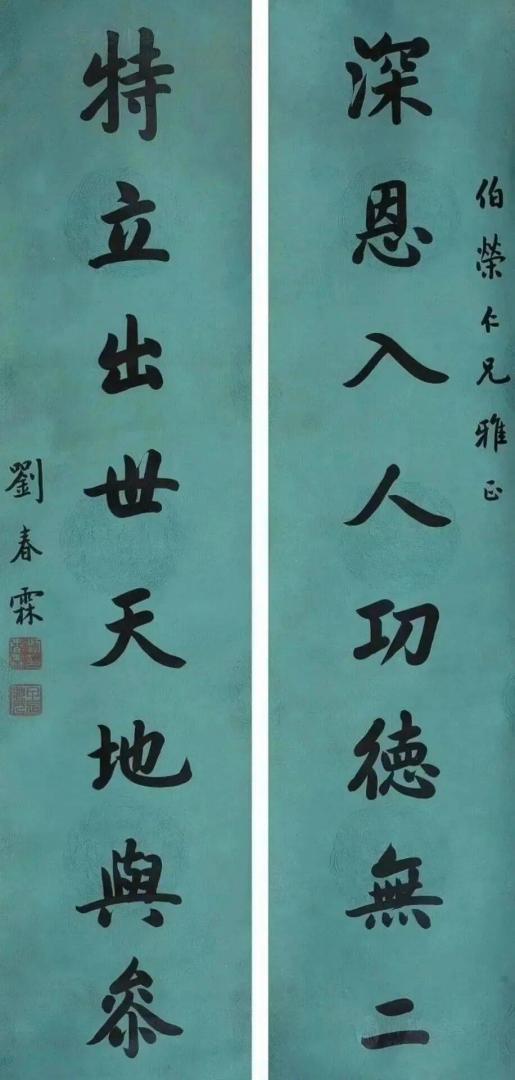 伯榮仁兄雅正
深恩入人功德無二
特立出世天地與參
劉春霖